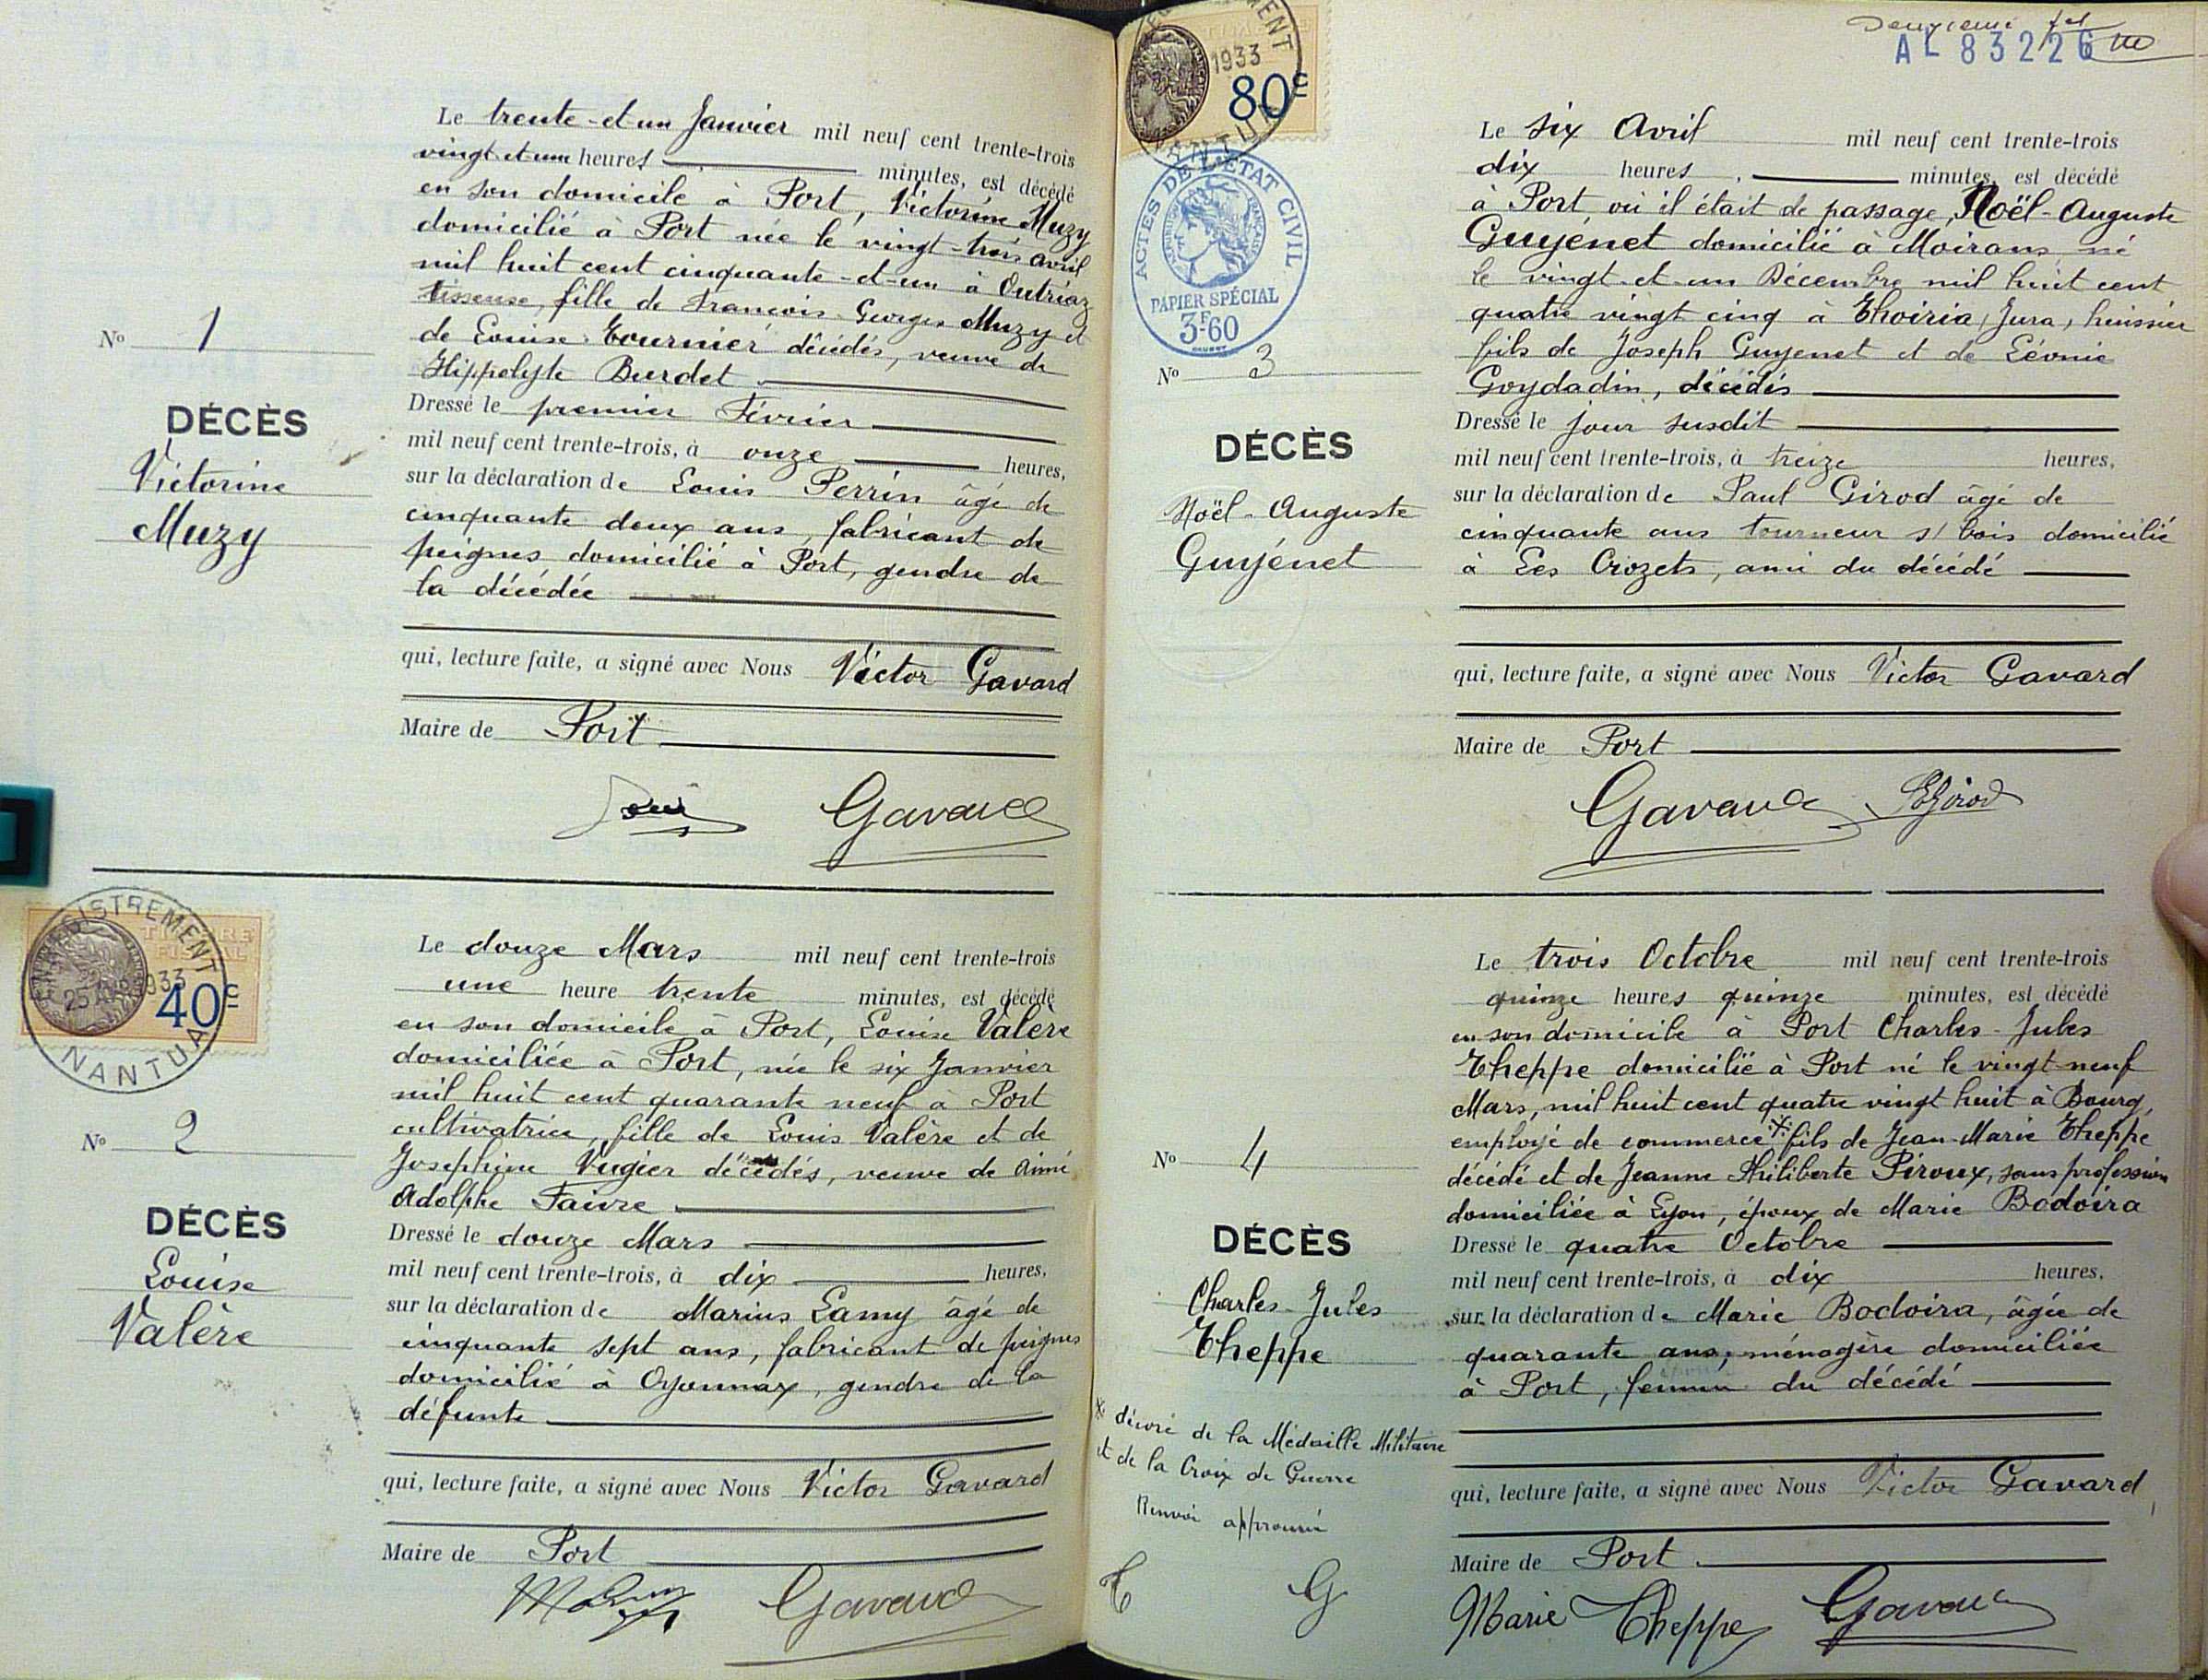 Le trente-et-un Janvier mil neuf cent trente-trois
vingt et une heures minutes, est décédé
en son domicile à Port, Victorine Muzy
domicilié à Port née le vingt-trois avril
mil huit cent cinquante-et-un à Outriaz
tisseuse, fille de François-Georges Muzy et
de Louise Tournier décédés, veuve de
Hippolyte Burdet
Dressé le premier Février
mil neuf cent trente-trois, à onze heures,
sur la déclaration de Louis Perrin âgé de
cinquante deux ans, fabricant de
peignes domicilié à Port, gendre de
la décédée
qui, lecture faite, a signé avec Nous Victor Gavard
Maire de Port
Gavard
No 1
DÉCÈS
Victorine
Muzy
ENREGISTREMENT
TIMBRE
FISCAL
1933
40c
NANTUA
Le douze Mars mil neuf cent trente-trois
une heure trente minutes, est décédé
en son domicile à Port, Louise Valère
domiciliée à Port, née le six Janvier
mil huit cent quarante neuf à Port
cultivatrice, fille de Louis Valère et de
Josephine Vugier décédés, veuve de Aimé
Adolphe Faivre
Dressé le douze Mars
mil neuf cent trente-trois, à dix heures,
sur la déclaration de Marius Lamy âgé de
cinquante sept ans, fabricant de peignes
domicilié à Oyonnax, gendre de la
défunte
qui, lecture faite, a signé avec Nous Victor Gavard
Maire de Port
Gavard
No 2
DÉCÈS
Louise
Valère
1933
80c
NANTUA
ACTES DE L'ÉTAT CIVIL
PAPIER SPÉCIAL
3F60
Deuxième
AL 83226
Le six Avril mil neuf cent trente-trois
dix heures, minutes, est décédé
à Port où il était de passage, Noël-Auguste
Guyénet domicilié à Moirans né
le vingt-et-un Décembre mil huit cent
quatre vingt cinq à Thoiria, Jura, huissier
fils de Joseph Guyenet et de Léonie
Goydadin, décédés
Dressé le jour susdit
mil neuf cent trente-trois, à treize heures,
sur la déclaration de Paul Girod âgé de
cinquante ans tourneur s/ bois domicilié
à Les Crozets, ami du décédé
qui, lecture faite, a signé avec Nous Victor Gavard
Maire de Port
Gavard PGirod
No 3
DÉCÈS
Noël-Auguste
Guyénet
Le trois Octobre mil neuf cent trente-trois
quinze heures quinze minutes, est décédé
en son domicile à Port Charles-Jules
Theppe domicilié à Port né le vingt-neuf
Mars, mil huit cent quatre vingt huit à Bourg,
employé de commerce * fils de Jean-Marie Theppe
décédé et de Jeanne Philiberte Piroux, sans profession
domiciliée à Lyon, époux de Marie Bodoira
Dressé le quatre Octobre
mil neuf cent trente-trois, à dix heures,
sur la déclaration de Marie Bodoira, âgée de
quarante ans, ménagère domiciliée
à Port, femme du décédé
qui, lecture faite, a signé avec Nous Victor Gavard
Maire de Port
Marie Theppe Gavard
No 4
DÉCÈS
Charles-Jules
Theppe
* décoré de la Médaille Militaire
et de la Croix de Guerre
Renvoi approuvé
T G